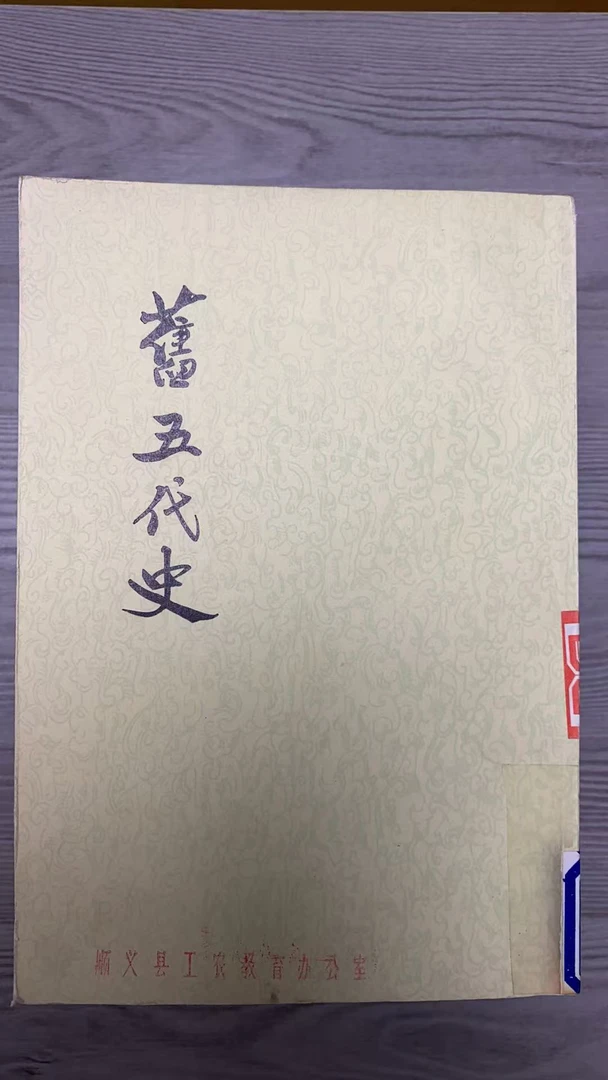 舊五代史
顺义县工农教育办公室